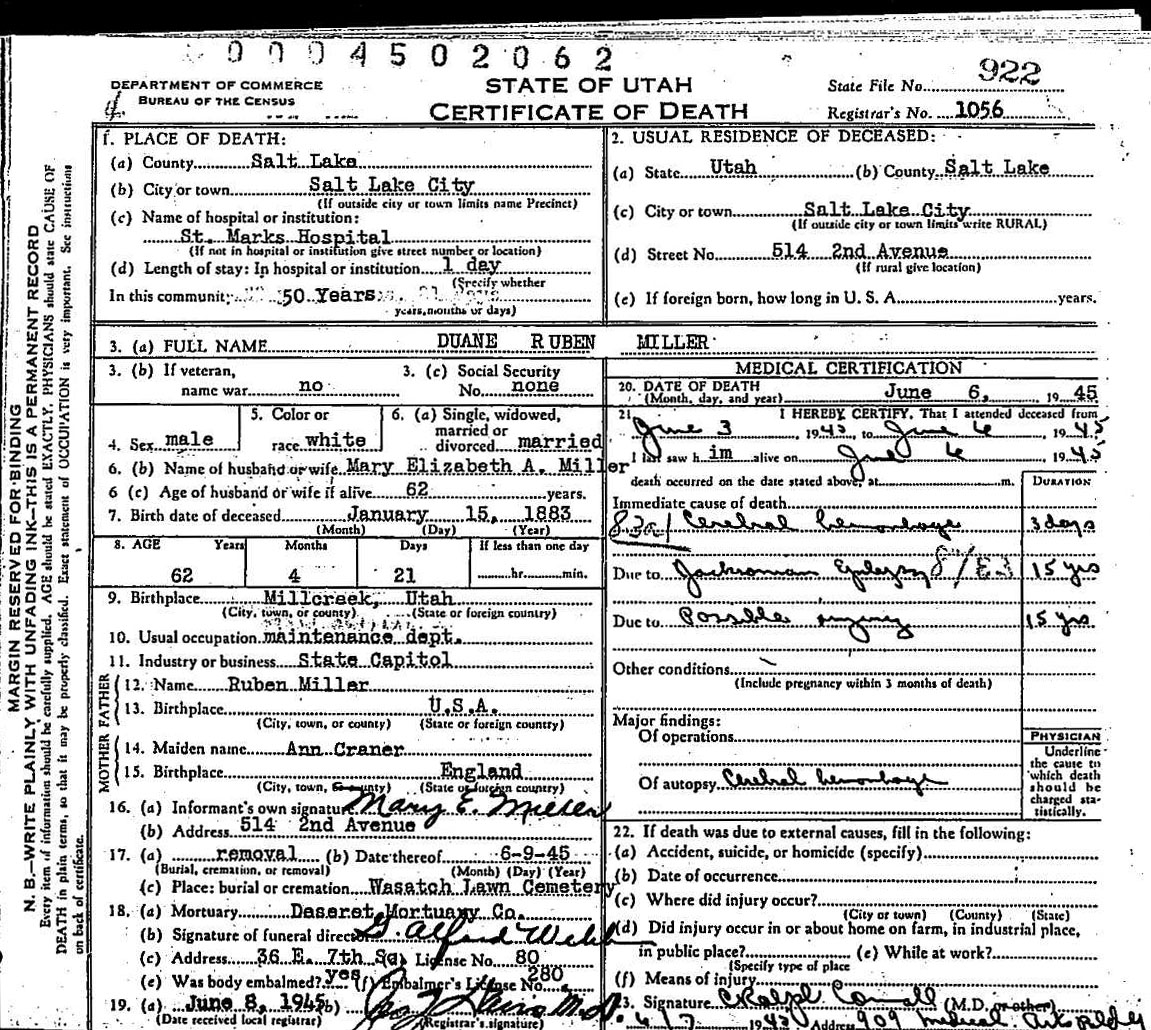 0004502062
DEPARTMENT OF COMMERCE
BUREAU OF THE CENSUS
STATE OF UTAH
CERTIFICATE OF DEATH
State File No. 922
Registrar's No. 1056
MARGIN RESERVED FOR BINDING
N. B.—WRITE PLAINLY WITH UNFADING INK—THIS IS A PERMANENT RECORD
Every item of information should be carefully supplied. AGE should be stated EXACTLY. PHYSICIANS should state CAUSE OF
DEATH in plain terms, so that it may be properly classified. Exact statement of OCCUPATION is very important. See instructions
on back of certificate.
1. PLACE OF DEATH:
(a) County Salt Lake
(b) City or town Salt Lake City
(If outside city or town limits name Precinct)
(c) Name of hospital or institution:
St. Marks Hospital
(If not in hospital or institution give street number or location)
(d) Length of stay: In hospital or institution 1 day
(Specify whether
In this community 50 Years
years, months or days)
2. USUAL RESIDENCE OF DECEASED:
(a) State Utah (b) County Salt Lake
(c) City or town Salt Lake City
(If outside city or town limits write RURAL)
(d) Street No. 514 2nd Avenue
(If rural give location)
(e) If foreign born, how long in U. S. A. years.
3. (a) FULL NAME DUANE RUBEN MILLER
3. (b) If veteran, name war no
3. (c) Social Security No. none
4. Sex male
5. Color or race white
6. (a) Single, widowed, married or divorced married
6. (b) Name of husband or wife Mary Elizabeth A. Miller
6 (c) Age of husband or wife if alive 62 years.
7. Birth date of deceased January 15, 1883
(Month) (Day) (Year)
8. AGE Years Months Days If less than one day
62 4 21 hr. min.
9. Birthplace Millcreek, Utah
(City, town, or county) (State or foreign country)
10. Usual occupation maintenance dept.
11. Industry or business State Capitol
FATHER
12. Name Ruben Miller
13. Birthplace U.S.A.
(City, town, or county) (State or foreign country)
MOTHER
14. Maiden name Ann Craner
15. Birthplace England
(City, town, or county) (State or foreign country)
16. (a) Informant's own signature Mary E. Miller
(b) Address 514 2nd Avenue
17. (a) removal (b) Date thereof 6-9-45
(Burial, cremation, or removal) (Month) (Day) (Year)
(c) Place: burial or cremation Wasatch Lawn Cemetery
18. (a) Mortuary Deseret Mortuary Co.
(b) Signature of funeral director G. Alfred Webb
(c) Address 36 E. 7th So. License No. 80
(e) Was body embalmed? yes (f) Embalmer's License No. 280
19. (a) June 8, 1945 (b) M.D.
(Date received local registrar) (Registrar's signature)
MEDICAL CERTIFICATION
20. DATE OF DEATH June 6, 1945
(Month, day, and year)
21. I HEREBY CERTIFY, That I attended deceased from
June 3, 1945 to June 6 1945
I last saw him alive on June 6 1945
death occurred on the date stated above, at m.
DURATION
Immediate cause of death
83a1 Cerebral hemorrhage 3 days
Due to Jacksonian Epilepsy 15 yrs
Due to Possible injury 15 yrs
Other conditions
(Include pregnancy within 3 months of death)
Major findings:
Of operations
Of autopsy Cerebral hemorrhage
PHYSICIAN
Underline
the cause to
which death
should be
charged sta-
tistically.
22. If death was due to external causes, fill in the following:
(a) Accident, suicide, or homicide (specify)
(b) Date of occurrence
(c) Where did injury occur?
(City or town) (County) (State)
(d) Did injury occur in or about home on farm, in industrial place,
in public place? (e) While at work?
(Specify type of place
(f) Means of injury
23. Signature (M.D. or other)
6/7 1945 Address 909 Medical